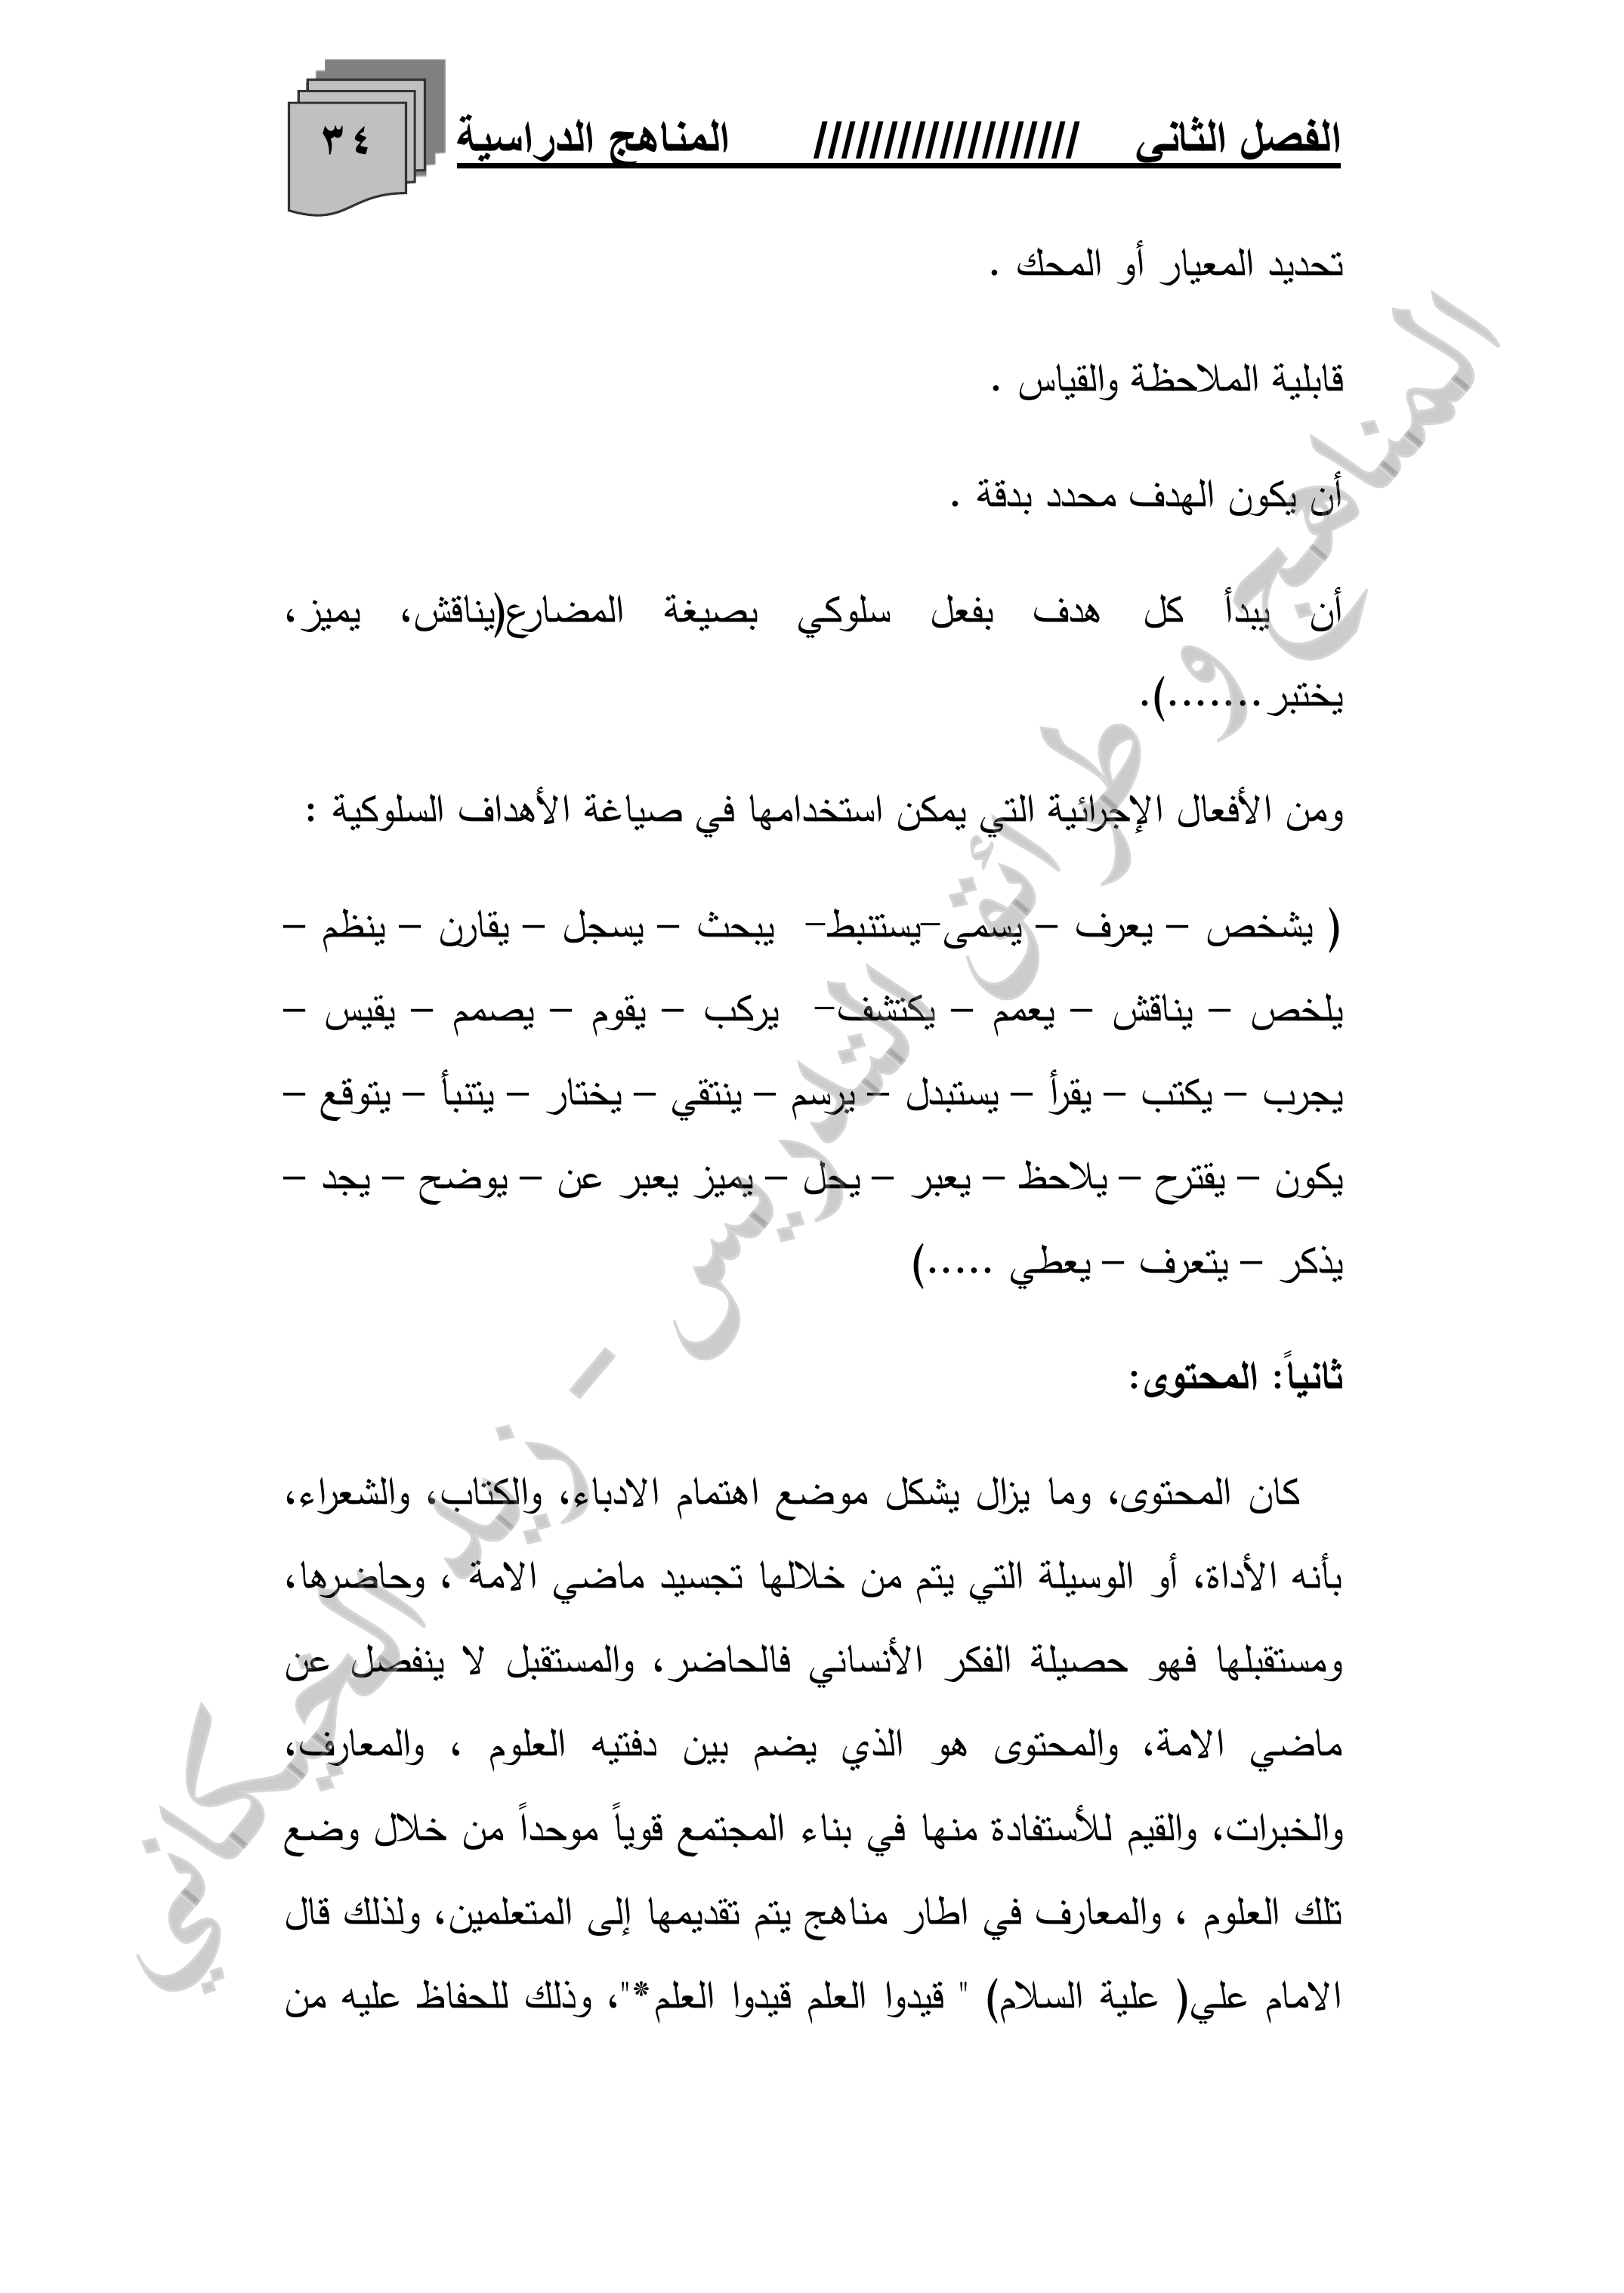 الفصل الثاني /////////////////// المناهج الدراسية ٣٤
تحديد المعيار أو المحك .
قابلية الملاحظة والقياس .
أن يكون الهدف محدد بدقة .
أن يبدأ كل هدف بفعل سلوكي بصيغة المضارع(يناقش، يميز،
يختبر.......).
ومن الأفعال الإجرائية التي يمكن استخدامها في صياغة الأهداف السلوكية :
( يشخص – يعرف – يسمى–يستنبط– يبحث – يسجل – يقارن – ينظم –
يلخص – يناقش – يعمم – يكتشف– يركب – يقوم – يصمم – يقيس –
يجرب – يكتب – يقرأ – يستبدل – يرسم – ينتقي – يختار – يتنبأ – يتوقع –
يكون – يقترح – يلاحظ – يعبر – يحل – يميز يعبر عن – يوضح – يجد –
يذكر – يتعرف – يعطي .....)
ثانياً: المحتوى:
كان المحتوى، وما يزال يشكل موضع اهتمام الادباء، والكتاب، والشعراء،
بأنه الأداة، أو الوسيلة التي يتم من خلالها تجسيد ماضي الامة ، وحاضرها،
ومستقبلها فهو حصيلة الفكر الأنساني فالحاضر، والمستقبل لا ينفصل عن
ماضي الامة، والمحتوى هو الذي يضم بين دفتيه العلوم ، والمعارف،
والخبرات، والقيم للأستفادة منها في بناء المجتمع قوياً موحداً من خلال وضع
تلك العلوم ، والمعارف في اطار مناهج يتم تقديمها إلى المتعلمين، ولذلك قال
الامام علي( علية السلام) " قيدوا العلم قيدوا العلم*"، وذلك للحفاظ عليه من
المناهج و طرائق التدريس - زيد الحيكاني